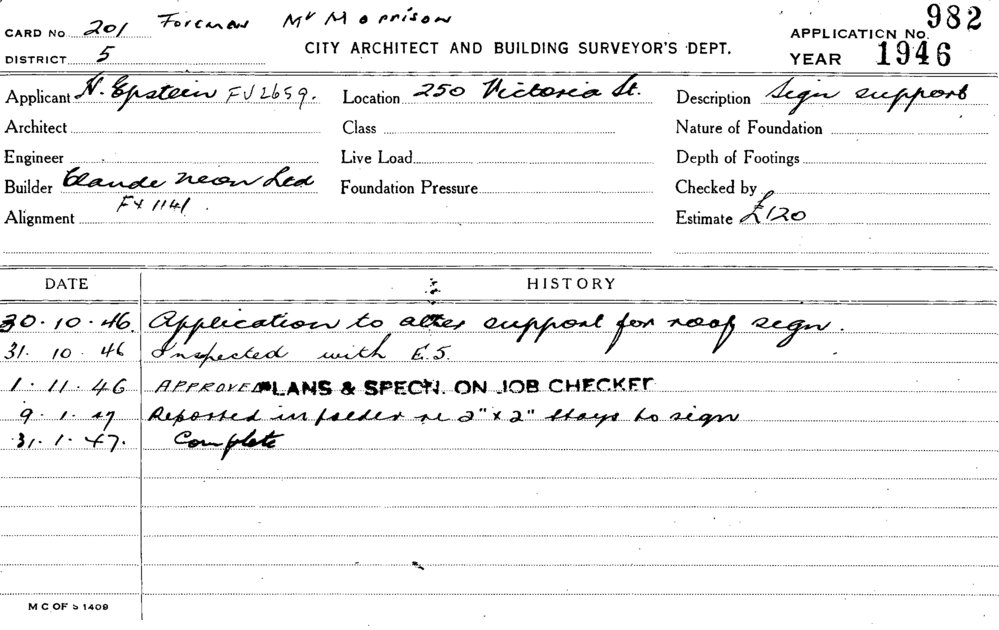 CARD No. 201 Foreman Mr Morrison
APPLICATION No. 982
DISTRICT 5
CITY ARCHITECT AND BUILDING SURVEYOR'S DEPT.
YEAR 1946
Applicant H. Epstein FU2659.
Location 250 Victoria St.
Description Sign support
Architect
Class
Nature of Foundation
Engineer
Live Load
Depth of Footings
Builder Claude Neon Ltd
FX 1141
Foundation Pressure
Checked by
Alignment
Estimate £120
DATE HISTORY
30. 10. 46. Application to alter support for roof sign.
31. 10. 46 Inspected with E.S.
1. 11. 46 APPROVED PLANS & SPECN. ON JOB CHECKED
9. 1. 47 Reported in folder re 2" x 2" stays to sign
31. 1. 47. Complete
M C OF S 1409